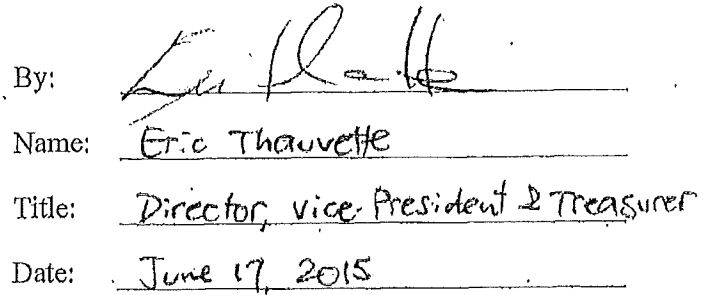 By:
Name: Eric Thauvette
Title: Director, vice-President & Treasurer
Date: June 17, 2015